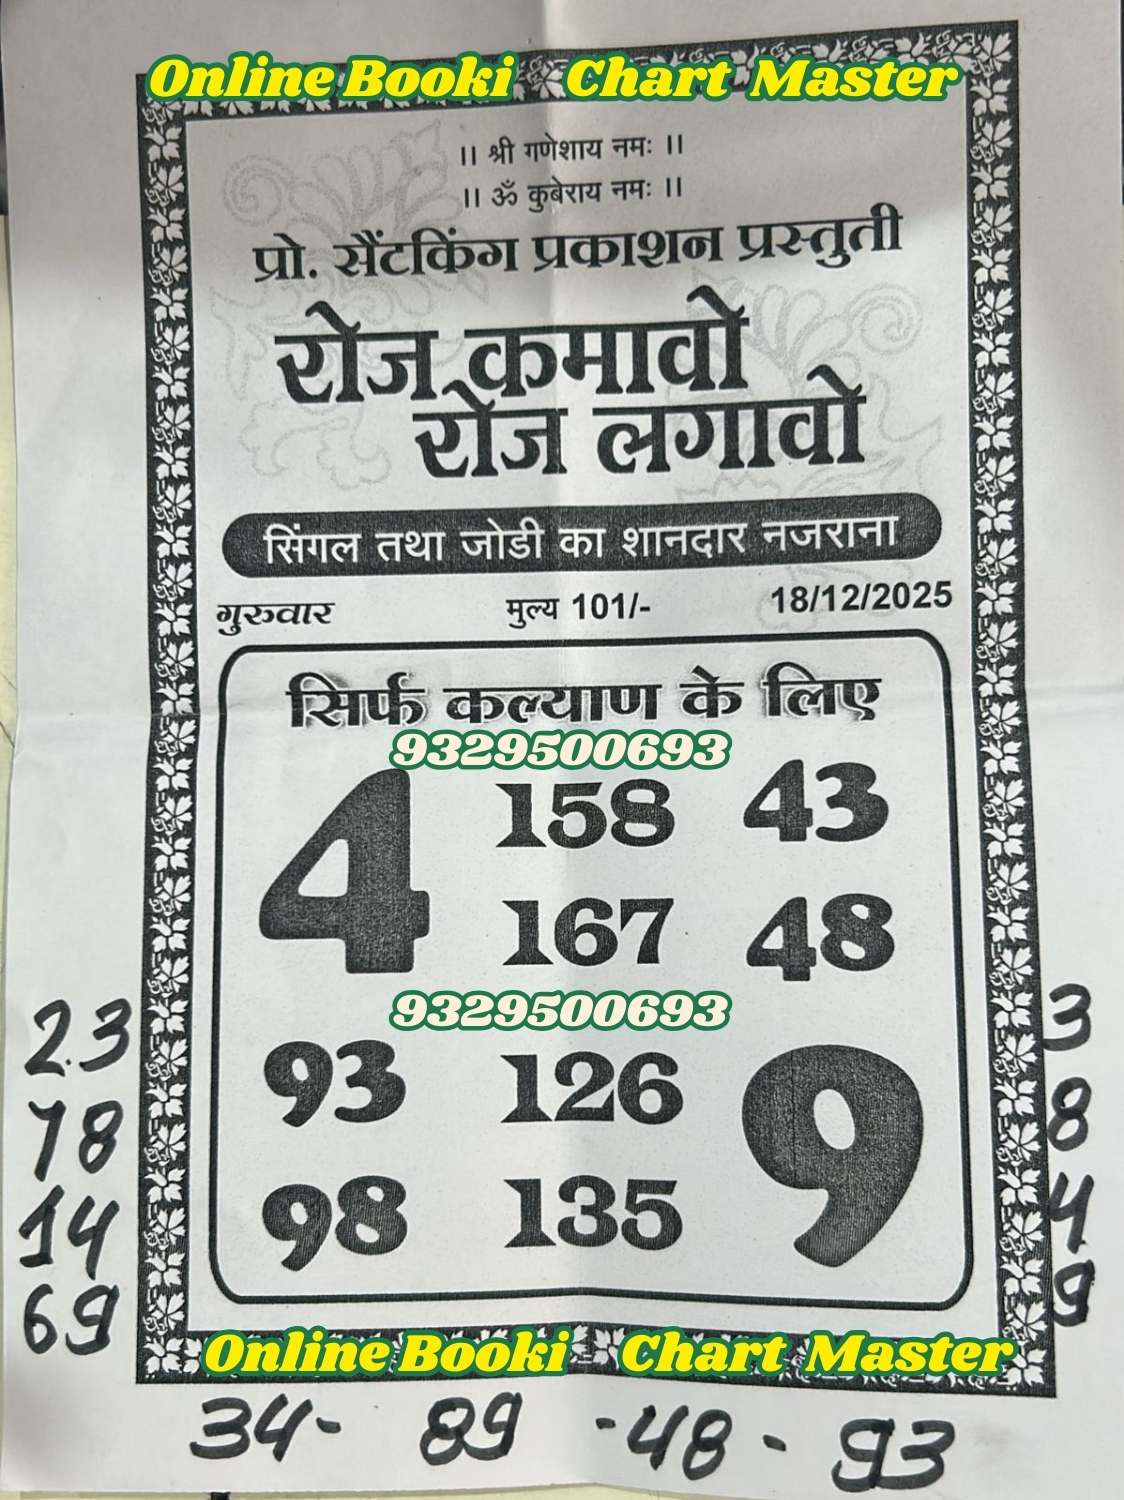 Online Booki Chart Master
।। श्री गणेशाय नमः ।।
।। ॐ कुबेराय नमः ।।
प्रो. सैंटकिंग प्रकाशन प्रस्तुती
रोज कमावो
रोज लगावो
सिंगल तथा जोडी का शानदार नजराना
गुरुवार मुल्य 101/- 18/12/2025
सिर्फ कल्याण के लिए
9329500693
4 158 43
167 48
9329500693
23 3
93 126 9
18 8
98 135
14 4
69 9
Online Booki Chart Master
34- 89 -48- 93